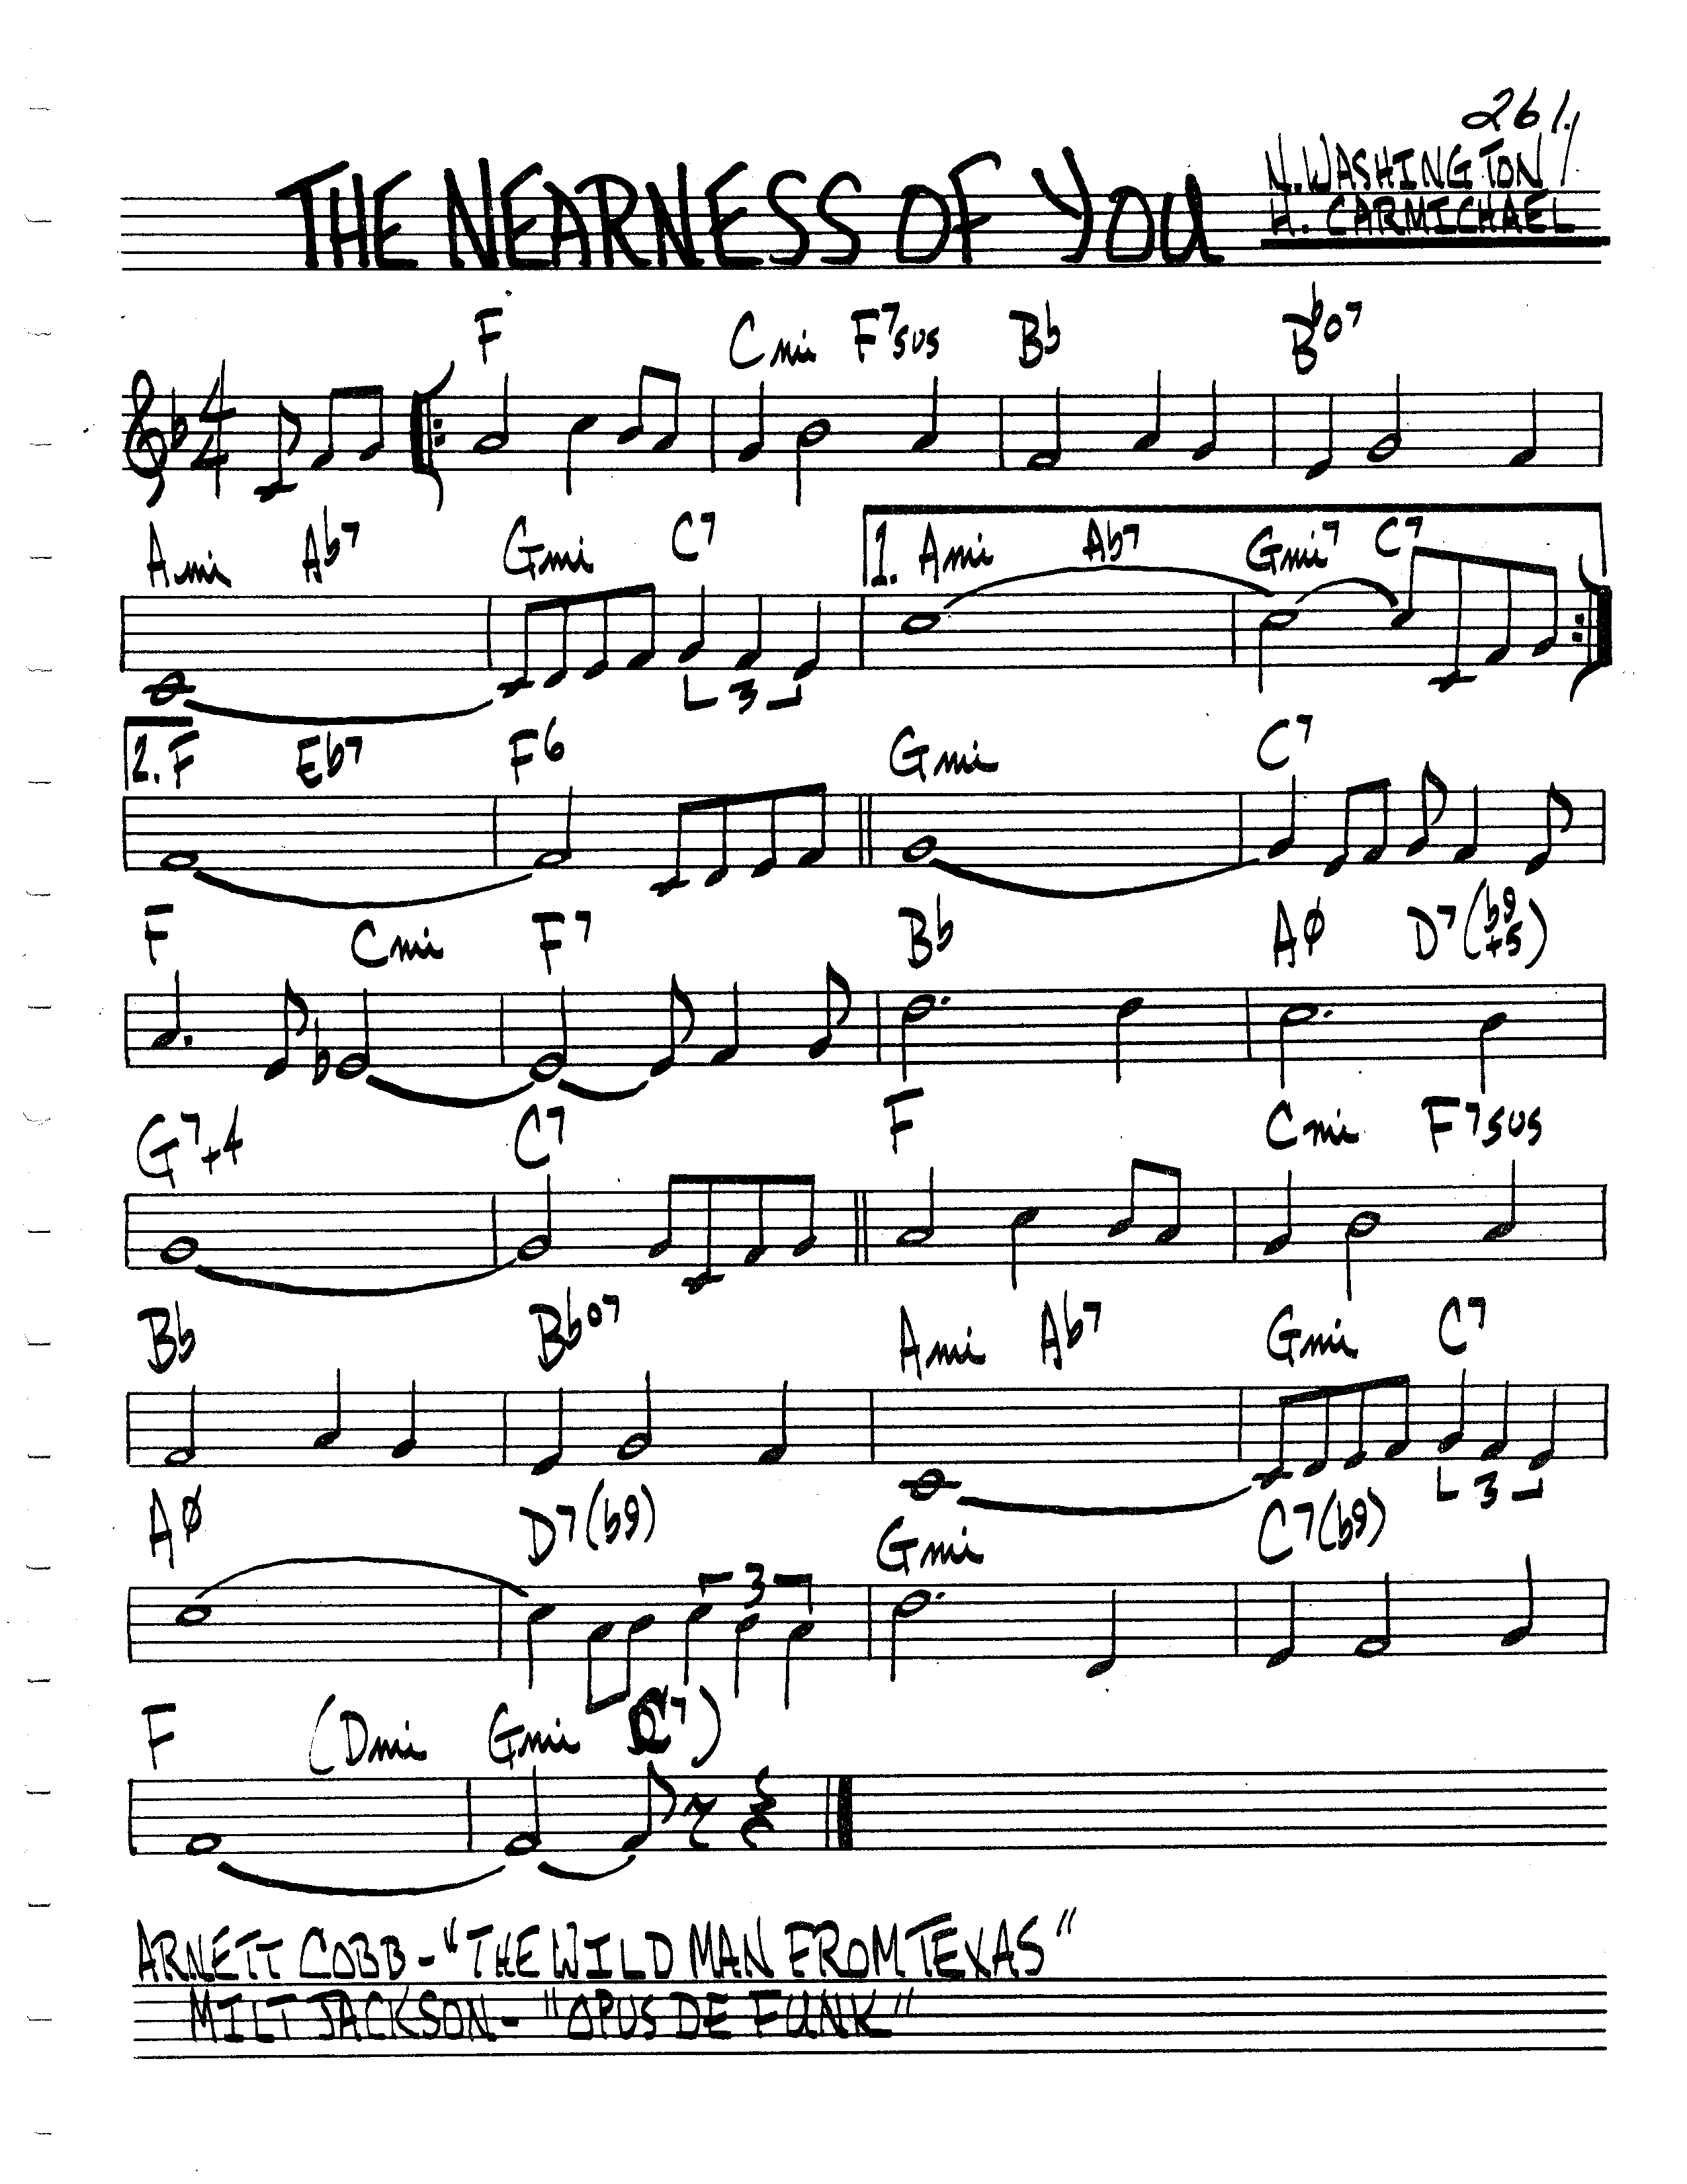 261.
THE NEARNESS OF YOU
N. WASHINGTON/
H. CARMICHAEL
F Cmi F7sus Bb Bbo7
4
4
Ami Ab7 Gmi C7 1. Ami Ab7 Gmi7 C7
3
2. F Eb7 F6 Gmi C7
F Cmi F7 Bb AØ D7(b9+5)
G7+4 C7 F Cmi F7sus
Bb Bbo7 Ami Ab7 Gmi C7
3
AØ D7(b9) Gmi C7(b9)
3
F (Dmi Gmi C7)
ARNETT COBB - "THE WILD MAN FROM TEXAS"
MILT JACKSON - "OPUS DE FUNK"